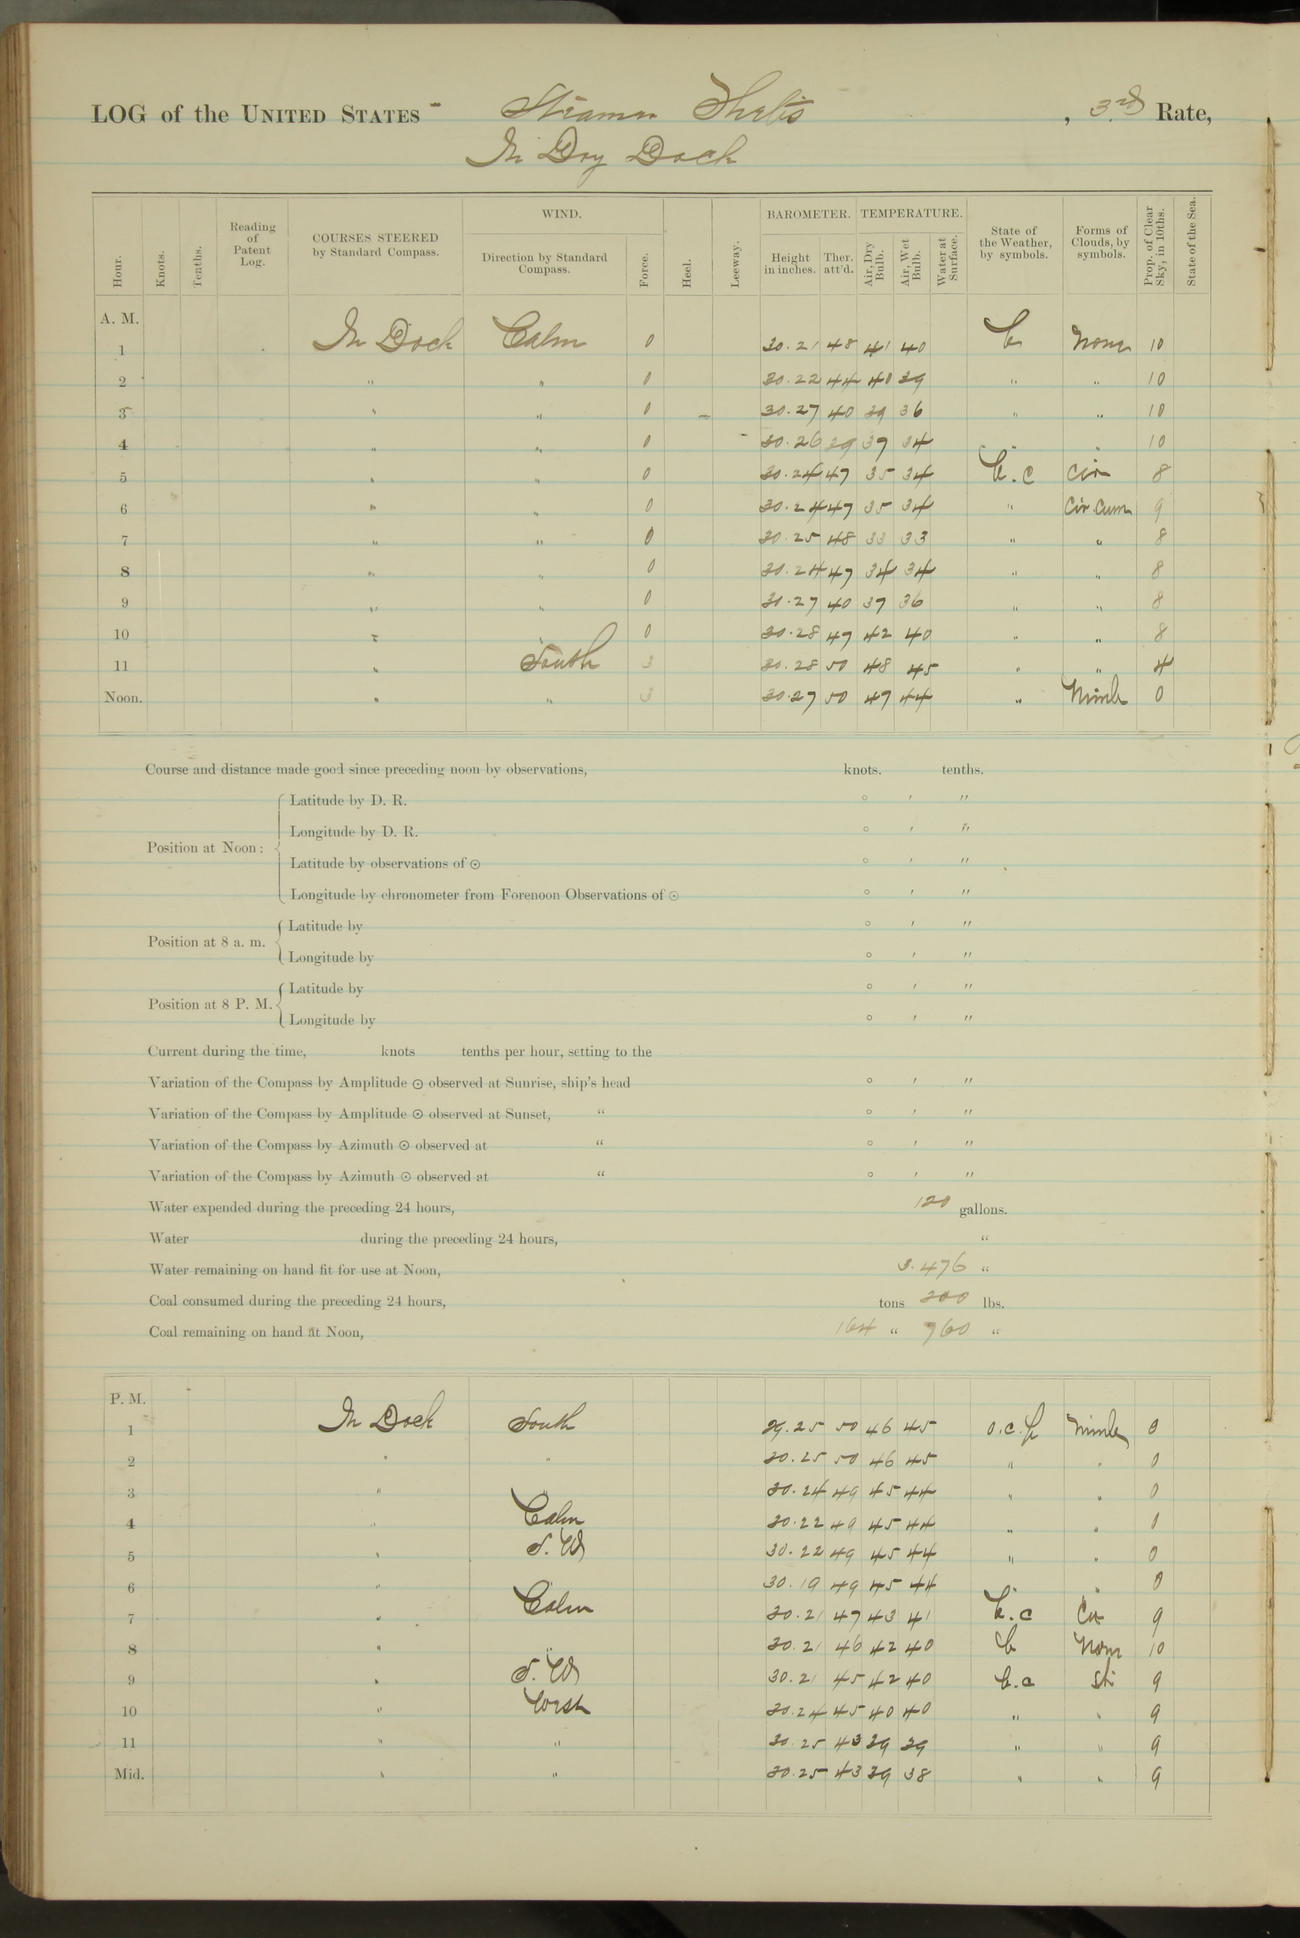 LOG of the UNITED STATES Steamer Thetis , 3rd Rate,
In Dry Dock
Hour. Knots. Tenths. Reading of Patent Log. COURSES STEERED by Standard Compass. WIND. Direction by Standard Compass. Force. Heel. Leeway. BAROMETER. Height in inches. Ther. att'd. TEMPERATURE. Air, Dry Bulb. Air, Wet Bulb. Water at Surface. State of the Weather, by symbols. Forms of Clouds, by symbols. Prop. of Clear Sky, in 10ths. State of the Sea.
A. M.
1 In Dock Calm 0 30.21 48 41 40 b None 10
2 " " 0 30.22 44 40 39 " " 10
3 " " 0 30.27 40 39 36 " " 10
4 " " 0 30.26 39 37 34 " " 10
5 " " 0 30.24 47 35 34 b.c Cir 8
6 " " 0 30.24 47 35 34 " Cir Cum 9
7 " " 0 30.25 48 33 33 " " 8
8 " " 0 30.24 47 34 34 " " 8
9 " " 0 30.27 40 37 36 " " 8
10 " " 0 30.28 49 42 40 " " 8
11 " South 3 30.28 50 48 45 " " 4
Noon. " " 3 30.27 50 47 44 " Nimb 0
Course and distance made good since preceding noon by observations, knots. tenths.
Latitude by D. R. ° ′ ″
Longitude by D. R. ° ′ ″
Position at Noon:
Latitude by observations of ⊙ ° ′ ″
Longitude by chronometer from Forenoon Observations of ⊙ ° ′ ″
Latitude by ° ′ ″
Position at 8 a. m.
Longitude by ° ′ ″
Latitude by ° ′ ″
Position at 8 P. M.
Longitude by ° ′ ″
Current during the time, knots tenths per hour, setting to the
Variation of the Compass by Amplitude ⊙ observed at Sunrise, ship's head ° ′ ″
Variation of the Compass by Amplitude ⊙ observed at Sunset, “ ° ′ ″
Variation of the Compass by Azimuth ⊙ observed at “ ° ′ ″
Variation of the Compass by Azimuth ⊙ observed at “ ° ′ ″
Water expended during the preceding 24 hours, 120 gallons.
Water during the preceding 24 hours, “
Water remaining on hand fit for use at Noon, 3.476 “
Coal consumed during the preceding 24 hours, tons 200 lbs.
Coal remaining on hand at Noon, 164 “ 760 “
P. M.
1 In Dock South 29.25 50 46 45 o.c.p Nimb 0
2 " " 30.25 50 46 45 " " 0
3 " " 30.24 49 45 44 " " 0
4 " Calm 30.22 49 45 44 " " 0
5 " S.W 30.22 49 45 44 " " 0
6 " " 30.19 49 45 44 " " 0
7 " Calm 30.21 47 43 41 b.c Cir 9
8 " " 30.21 46 42 40 b None 10
9 " S.W 30.21 45 42 40 b.c Str 9
10 " West 30.24 45 40 40 " " 9
11 " " 30.25 43 39 39 " " 9
Mid. " " 30.25 43 39 38 " " 9